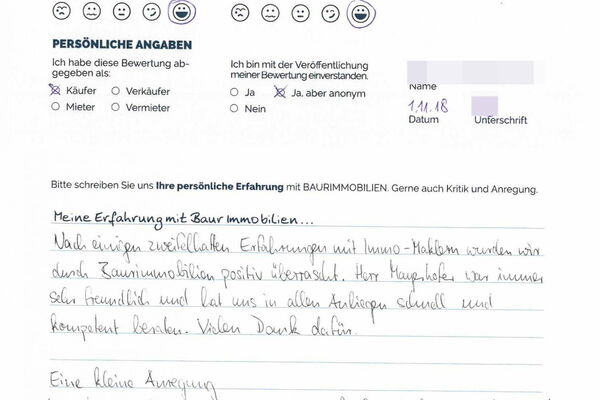 PERSÖNLICHE ANGABEN
Ich habe diese Bewertung ab-
gegeben als:
Käufer
Verkäufer
Mieter
Vermieter
Ich bin mit der Veröffentlichung
meiner Bewertung einverstanden.
Ja
Ja, aber anonym
Nein
Name
1.11.18
Datum
Unterschrift
Bitte schreiben Sie uns Ihre persönliche Erfahrung mit BAURIMMOBILIEN. Gerne auch Kritik und Anregung.
Meine Erfahrung mit Baur Immobilien...
Nach einigen zweifelhaften Erfahrungen mit Immo-Maklern wurden wir
durch Baurimmobilien positiv überrascht. Herr Mayerhofer war immer
sehr freundlich und hat uns in allen Anliegen schnell und
kompetent beraten. Vielen Dank dafür.
Eine kleine Anregung